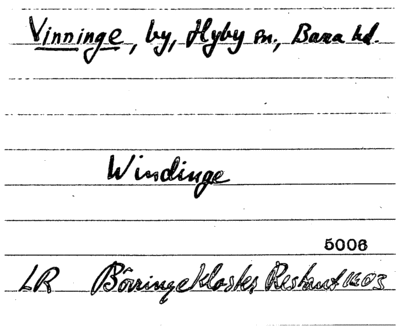 Vinninge, by, Hyby sn., Bara hd.
Windinge
5006
LR Börringekloster Restant 1603